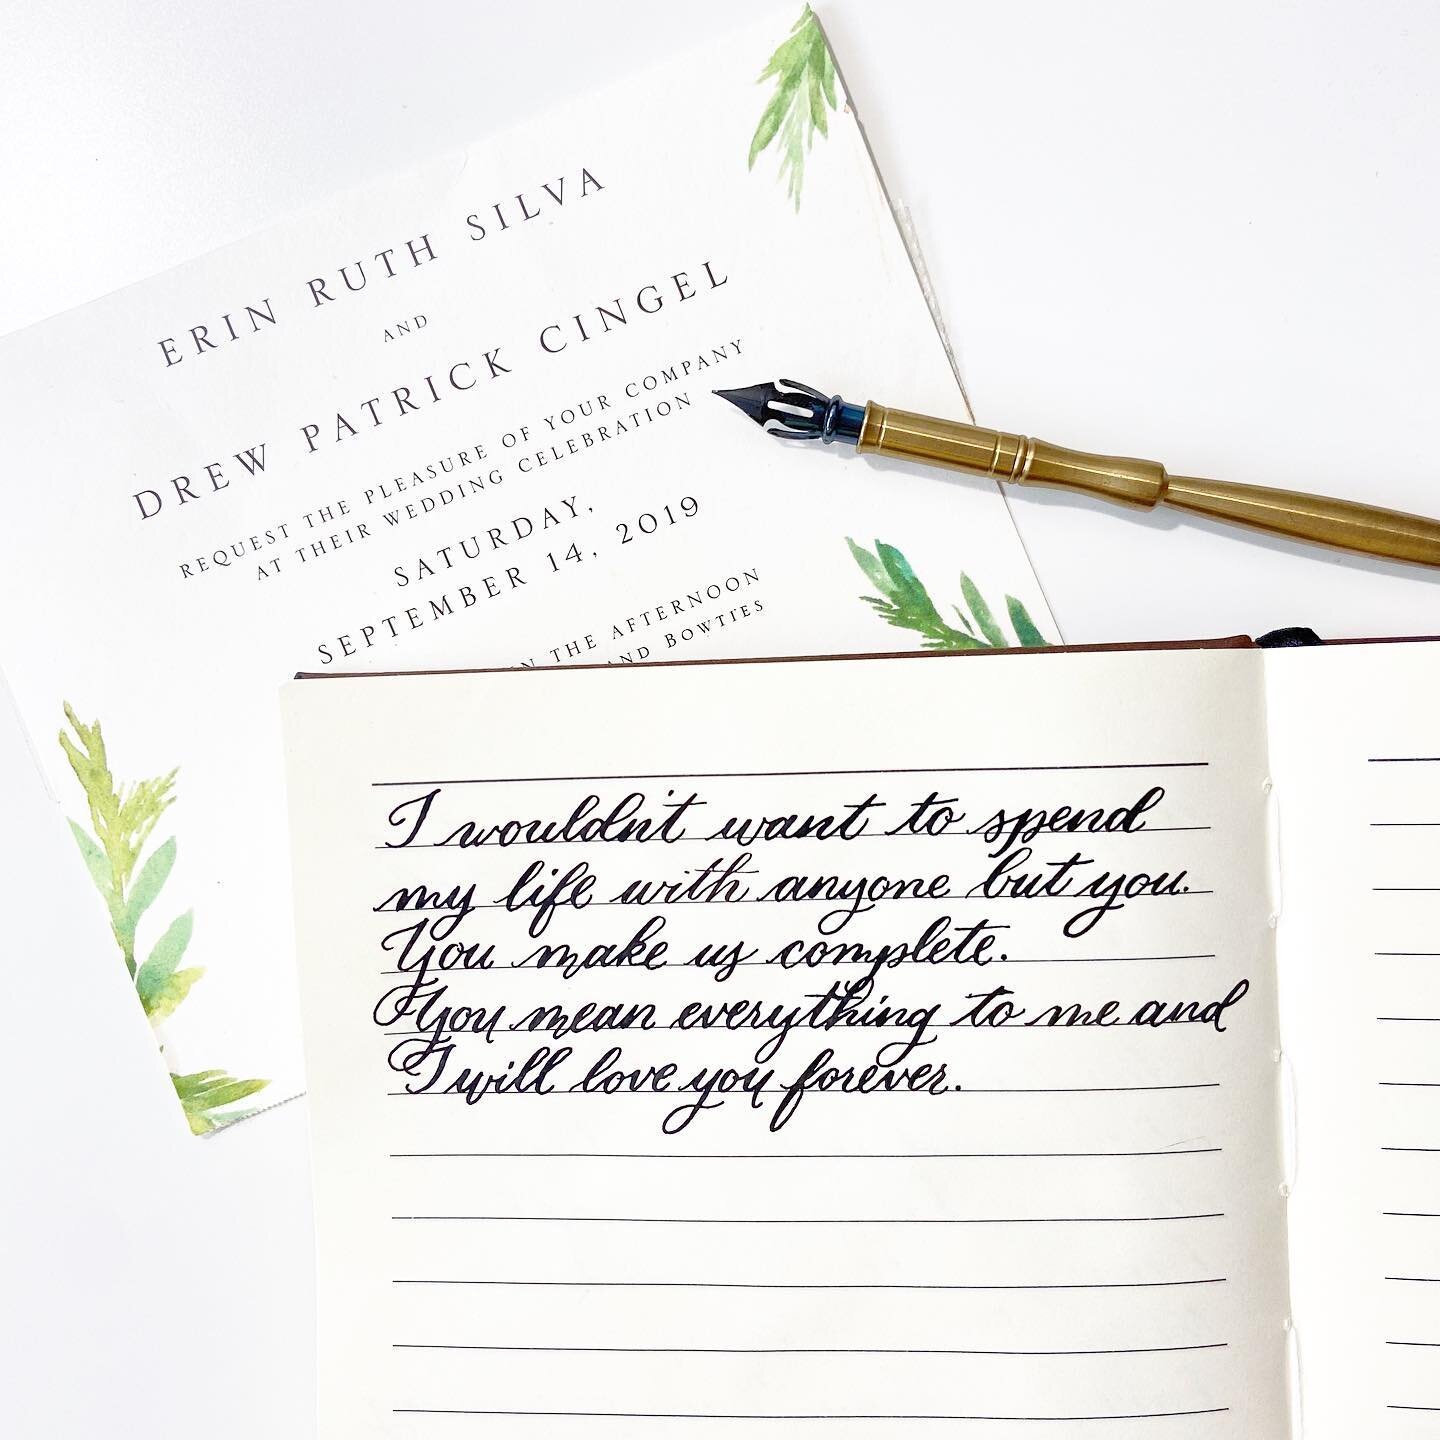 ERIN RUTH SILVA
AND
DREW PATRICK CINGEL
REQUEST THE PLEASURE OF YOUR COMPANY
AT THEIR WEDDING CELEBRATION
SATURDAY,
SEPTEMBER 14, 2019
IN THE AFTERNOON
AND BOWTIES
I wouldn't want to spend
my life with anyone but you.
You make us complete.
You mean everything to me and
I will love you forever.